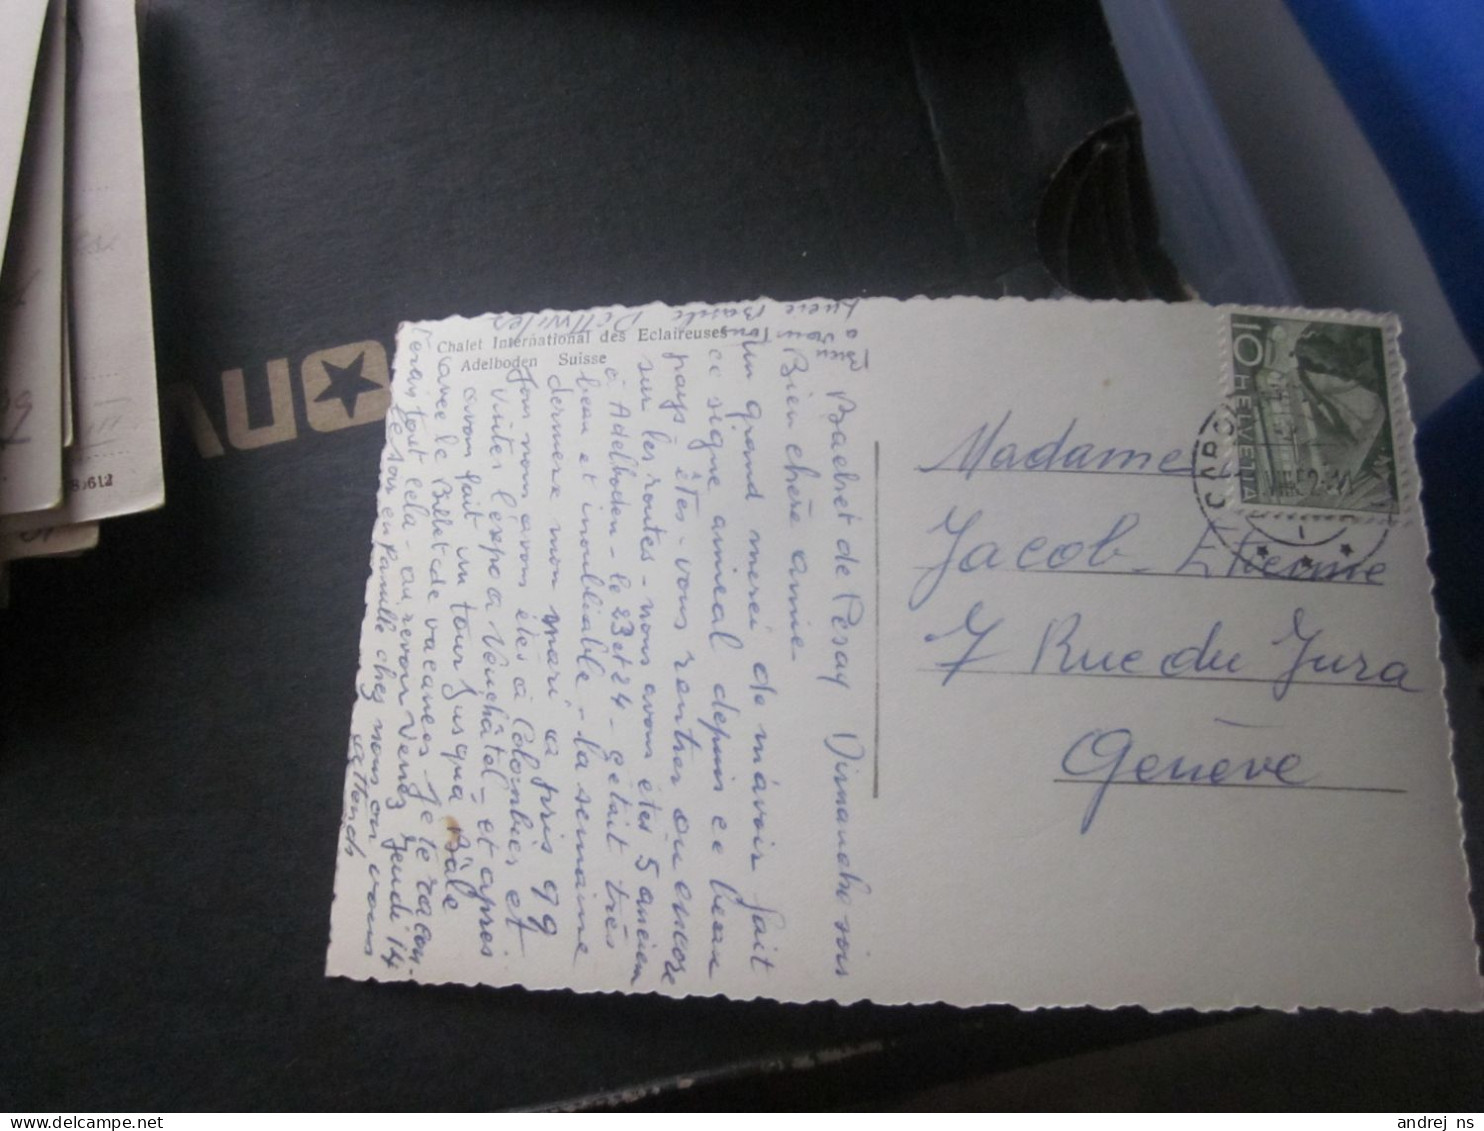 Chalet International des Eclaireuses
Adelboden Suisse
Bachet de Pesay Dimanche soir
Bien chère amie
Un grand merci de m'avoir fait
ce signe amical depuis ce beau
pays - êtes-vous rentrer ou encore
sur les routes - nous avons étés 5 ancien
à Adelboden - le 23 et 24 - c'était très
beau et inoubliable - la semaine
dernière mon mari a pris
Jour nous avons étés à Colombier et
visiter l'expo a Neuchâtel - et apres
avon fait un tour jusqua Bâle
avec le Billet de vacances Je te racon-
terais tout cela - au revoir Venez Jeudi 14
le soir en famille chez nous on vous
attends
a vous
Madame
Jacob-Etienne
7 Rue du Jura
Genève
10
HELVETIA
CAROU
1
8612
andrej_ns